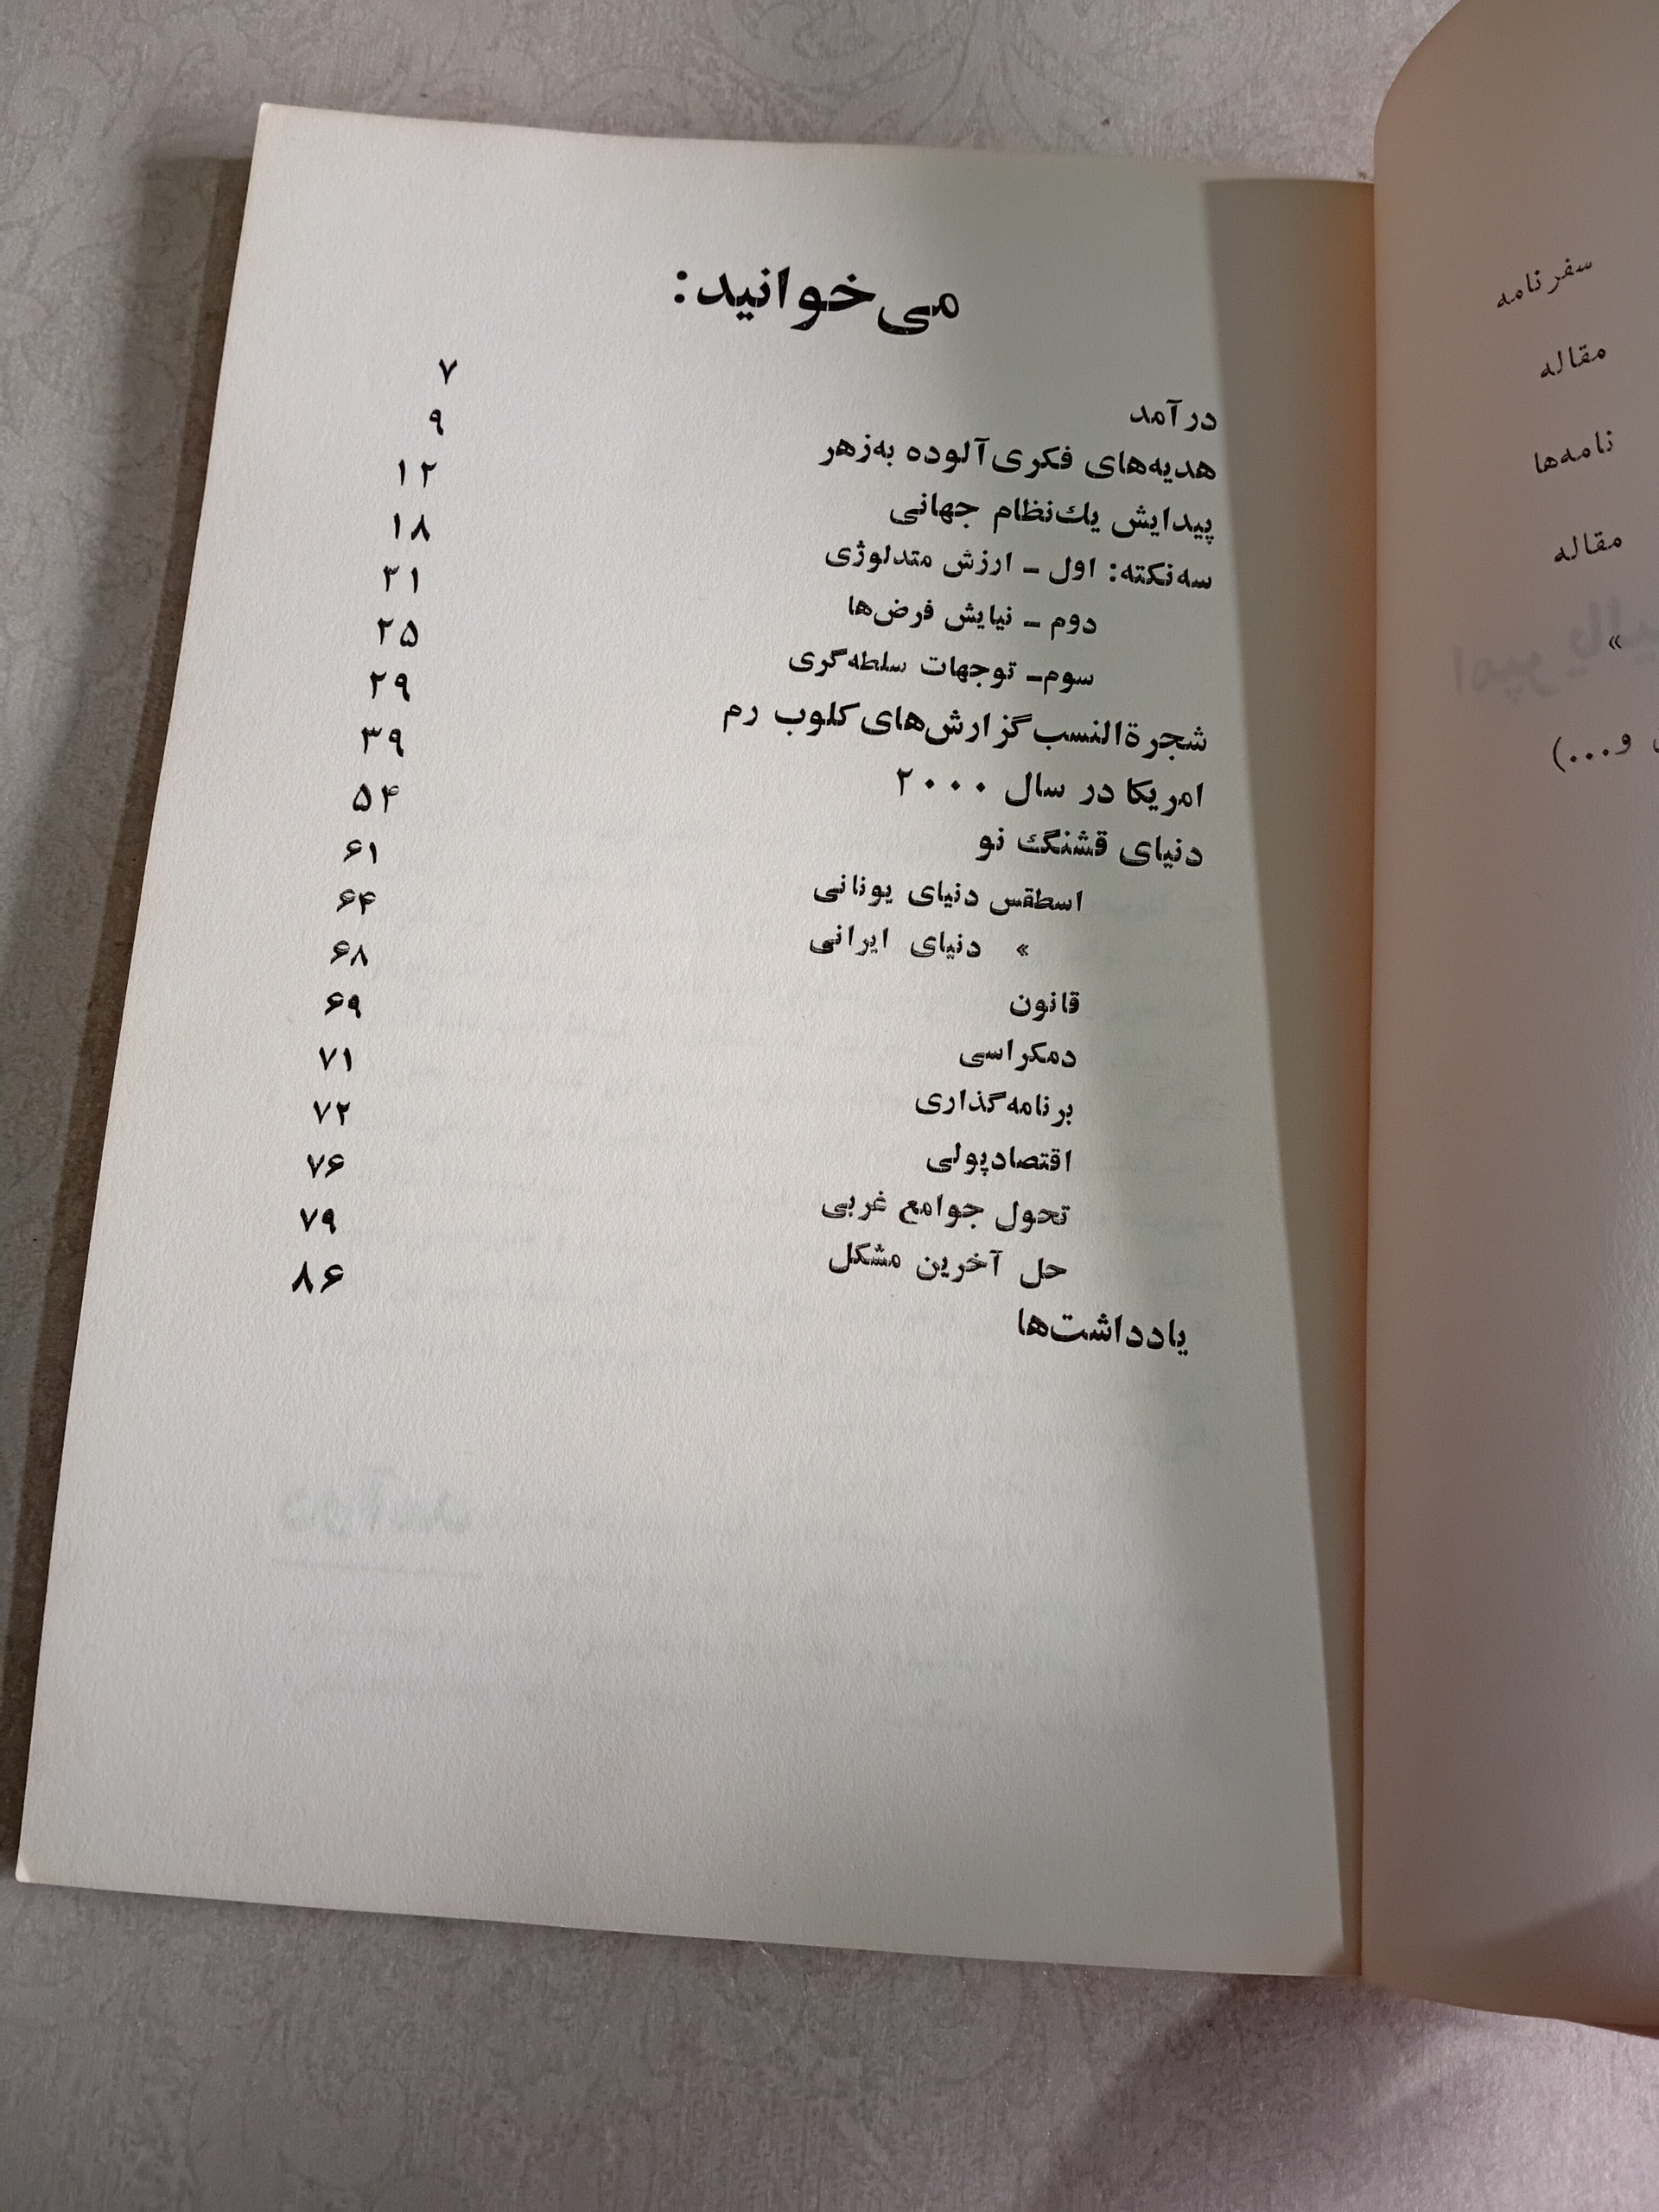 سفرنامه
مقاله
نامه‌ها
مقاله
»
و...)
می‌خوانید:
درآمد ۷
هدیه‌های فکری آلوده به‌زهر ۹
پیدایش یك‌نظام جهانی ۱۲
سه‌نکته: اول ــ ارزش متدلوژی ۱۸
دوم ــ نیایش فرض‌ها ۲۱
سوم‌ــ توجهات سلطه‌گری ۲۵
شجرة‌النسب گزارش‌های کلوب رم ۲۹
امریکا در سال ۲۰۰۰ ۳۹
دنیای قشنگ نو ۵۴
اسطقس دنیای یونانی ۶۱
» دنیای ایرانی ۶۴
قانون ۶۸
دمکراسی ۶۹
برنامه‌گذاری ۷۱
اقتصاد‌پولی ۷۲
تحول جوامع غربی ۷۶
حل آخرین مشکل ۷۹
یادداشت‌ها ۸۶